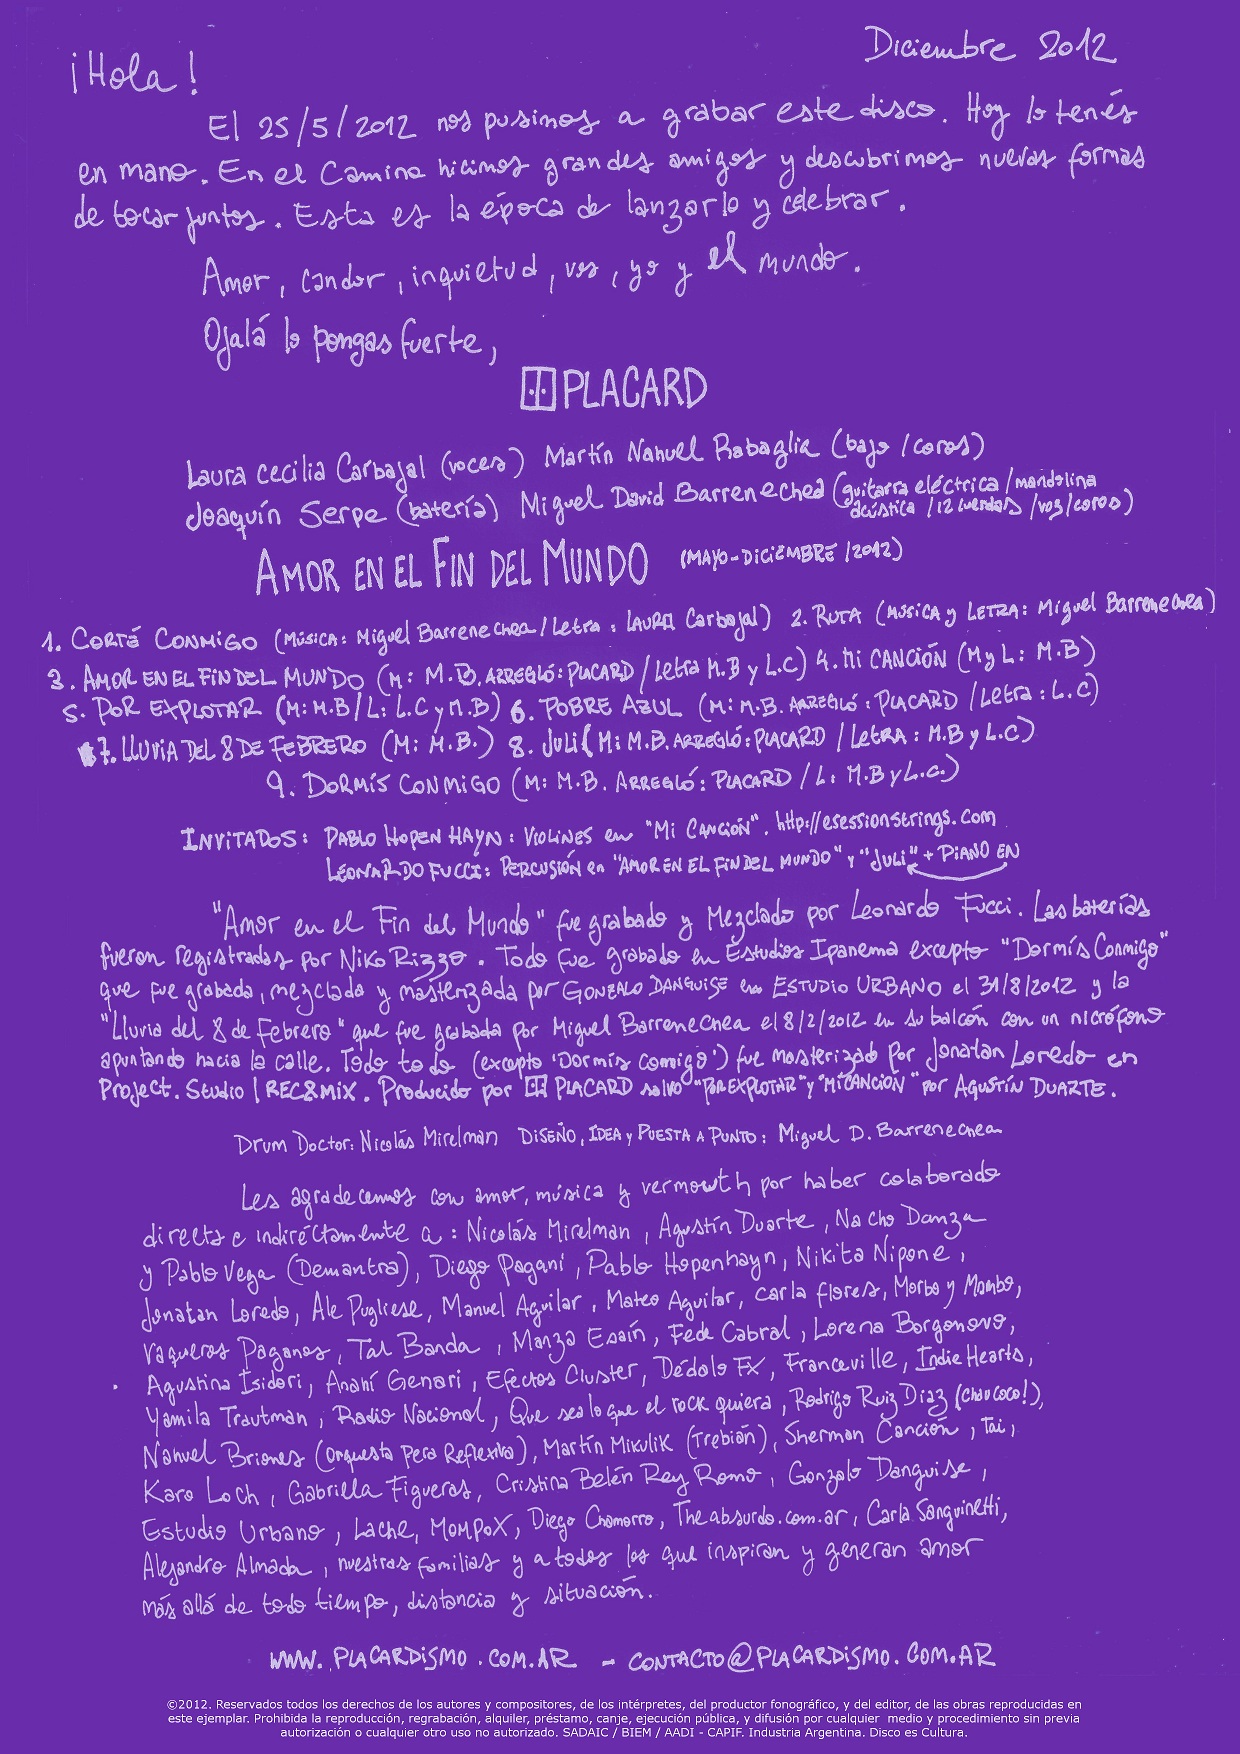 Diciembre 2012
¡Hola!
El 25/5/2012 nos pusimos a grabar este disco. Hoy lo tenés
en mano. En el Camino hicimos grandes amigos y descubrimos nuevas formas
de tocar juntos. Esta es la época de lanzarlo y celebrar.
Amor, candor, inquietud, vos, yo y el mundo.
Ojalá lo pongas fuerte,
PLACARD
Laura Cecilia Carbajal (voces) Martín Nahuel Rabaglia (bajo/coros)
Joaquín Serpe (batería) Miguel David Barrenechea (guitarra eléctrica/mandolina
acústica/12 cuerdas/voz/coros)
AMOR EN EL FIN DEL MUNDO (MAYO-DICIEMBRE/2012)
1. CORTÉ CONMIGO (Música: Miguel Barrenechea/Letra: LAURA Carbajal) 2. RUTA (MÚSICA y LETRA: Miguel Barrenechea)
3. AMOR EN EL FIN DEL MUNDO (M: M.B. ARREGLÓ: PLACARD/Letra M.B y L.C) 4. Mi CANCIÓN (M y L: M.B)
5. POR EXPLOTAR (M: M.B/L: L.C y M.B) 6. POBRE AZUL (M: M.B. ARREGLÓ: PLACARD/Letra: L.C)
7. LLUVIA DEL 8 DE FEBRERO (M: M.B.) 8. JULI (M: M.B. ARREGLÓ: PLACARD/LETRA: M.B y L.C)
9. DORMÍS CONMIGO (M: M.B. ARREGLÓ: PLACARD/L: M.B y L.C.)
INVITADOS: PABLO HOPEN HAYN: VIOLINES en "Mi CANCIÓN". http://esessionstrings.com
LEONARDO FUCCI: PERCUSIÓN en "AMOR EN EL FIN DEL MUNDO" y "JULI" + PIANO EN
"Amor en el Fin del Mundo" fue grabado y Mezclado por Leonardo Fucci. Las baterías
fueron registradas por Niko Rizzo. Todo fue grabado en Estudios Ipanema excepto "Dormís Conmigo"
que fue grabada, mezclada y masterizada por GONZALO DANGUISE en ESTUDIO URBANO el 31/8/2012 y la
"Lluvia del 8 de Febrero" que fue grabada por Miguel Barrenechea el 8/2/2012 en su balcón con un micrófono
apuntando hacia la calle. Todo todo (excepto 'Dormís Comigo') fue masterizado por Jonatan Loredo en
Project. Studio | REC&MIX. Producido por PLACARD salvo "POR EXPLOTAR" y "MI CANCIÓN" por AGUSTÍN DUARTE.
Drum Doctor: Nicolás Mirelman DISEÑO, IDEA y PUESTA A PUNTO: Miguel D. Barrenechea
Les agradecemos con amor, música y vermouth por haber colaborado
directa e indirectamente a: Nicolás Mirelman, Agustín Duarte, Nacho Danza
y Pablo Vega (Demantra), Diego Pagani, Pablo Hopenhayn, Nikita Nipone,
Jonatan Loredo, Ale Pugliese, Manuel Aguilar, Mateo Aguilar, Carla flores, Morbo y Mambo,
Vaqueros Paganos, Tal Banda, Manza Esaín, Fede Cabral, Lorena Borgonovo,
Agustina Isidori, Anahí Genari, Efectos Cluster, Dédalo FX, Franceville, Indie Hearts,
Yamila Trautman, Radio Nacional, Que sea lo que el rock quiera, Rodrigo Ruiz Díaz (Chau coco!),
Nahuel Briones (Orquesta Pera Reflexiva), Martín Mikulik (Trebián), Sherman Canción, Tai,
Karo Loch, Gabriella Figueras, Cristina Belén Rey Romo, Gonzalo Danguise,
Estudio Urbano, Lache, MOMPOX, Diego Chamorro, Theabsurdo.com.ar, Carla Sanguinetti,
Alejandro Almada, nuestras familias y a todos los que inspiran y generan amor
más allá de todo tiempo, distancia y situación.
WWW.PLACARDISMO.COM.AR - CONTACTO@PLACARDISMO.COM.AR
©2012. Reservados todos los derechos de los autores y compositores, de los intérpretes, del productor fonográfico, y del editor, de las obras reproducidas en
este ejemplar. Prohibida la reproducción, regrabación, alquiler, préstamo, canje, ejecución pública, y difusión por cualquier medio y procedimiento sin previa
autorización o cualquier otro uso no autorizado. SADAIC / BIEM / AADI - CAPIF. Industria Argentina. Disco es Cultura.